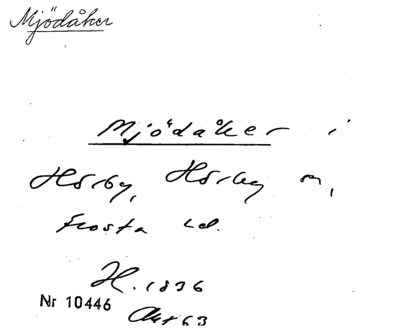 Mjödåker
Mjödåker i
Hörby, Hörby sn,
Frosta hd.
H. 1836
Nr 10446
Akt 63